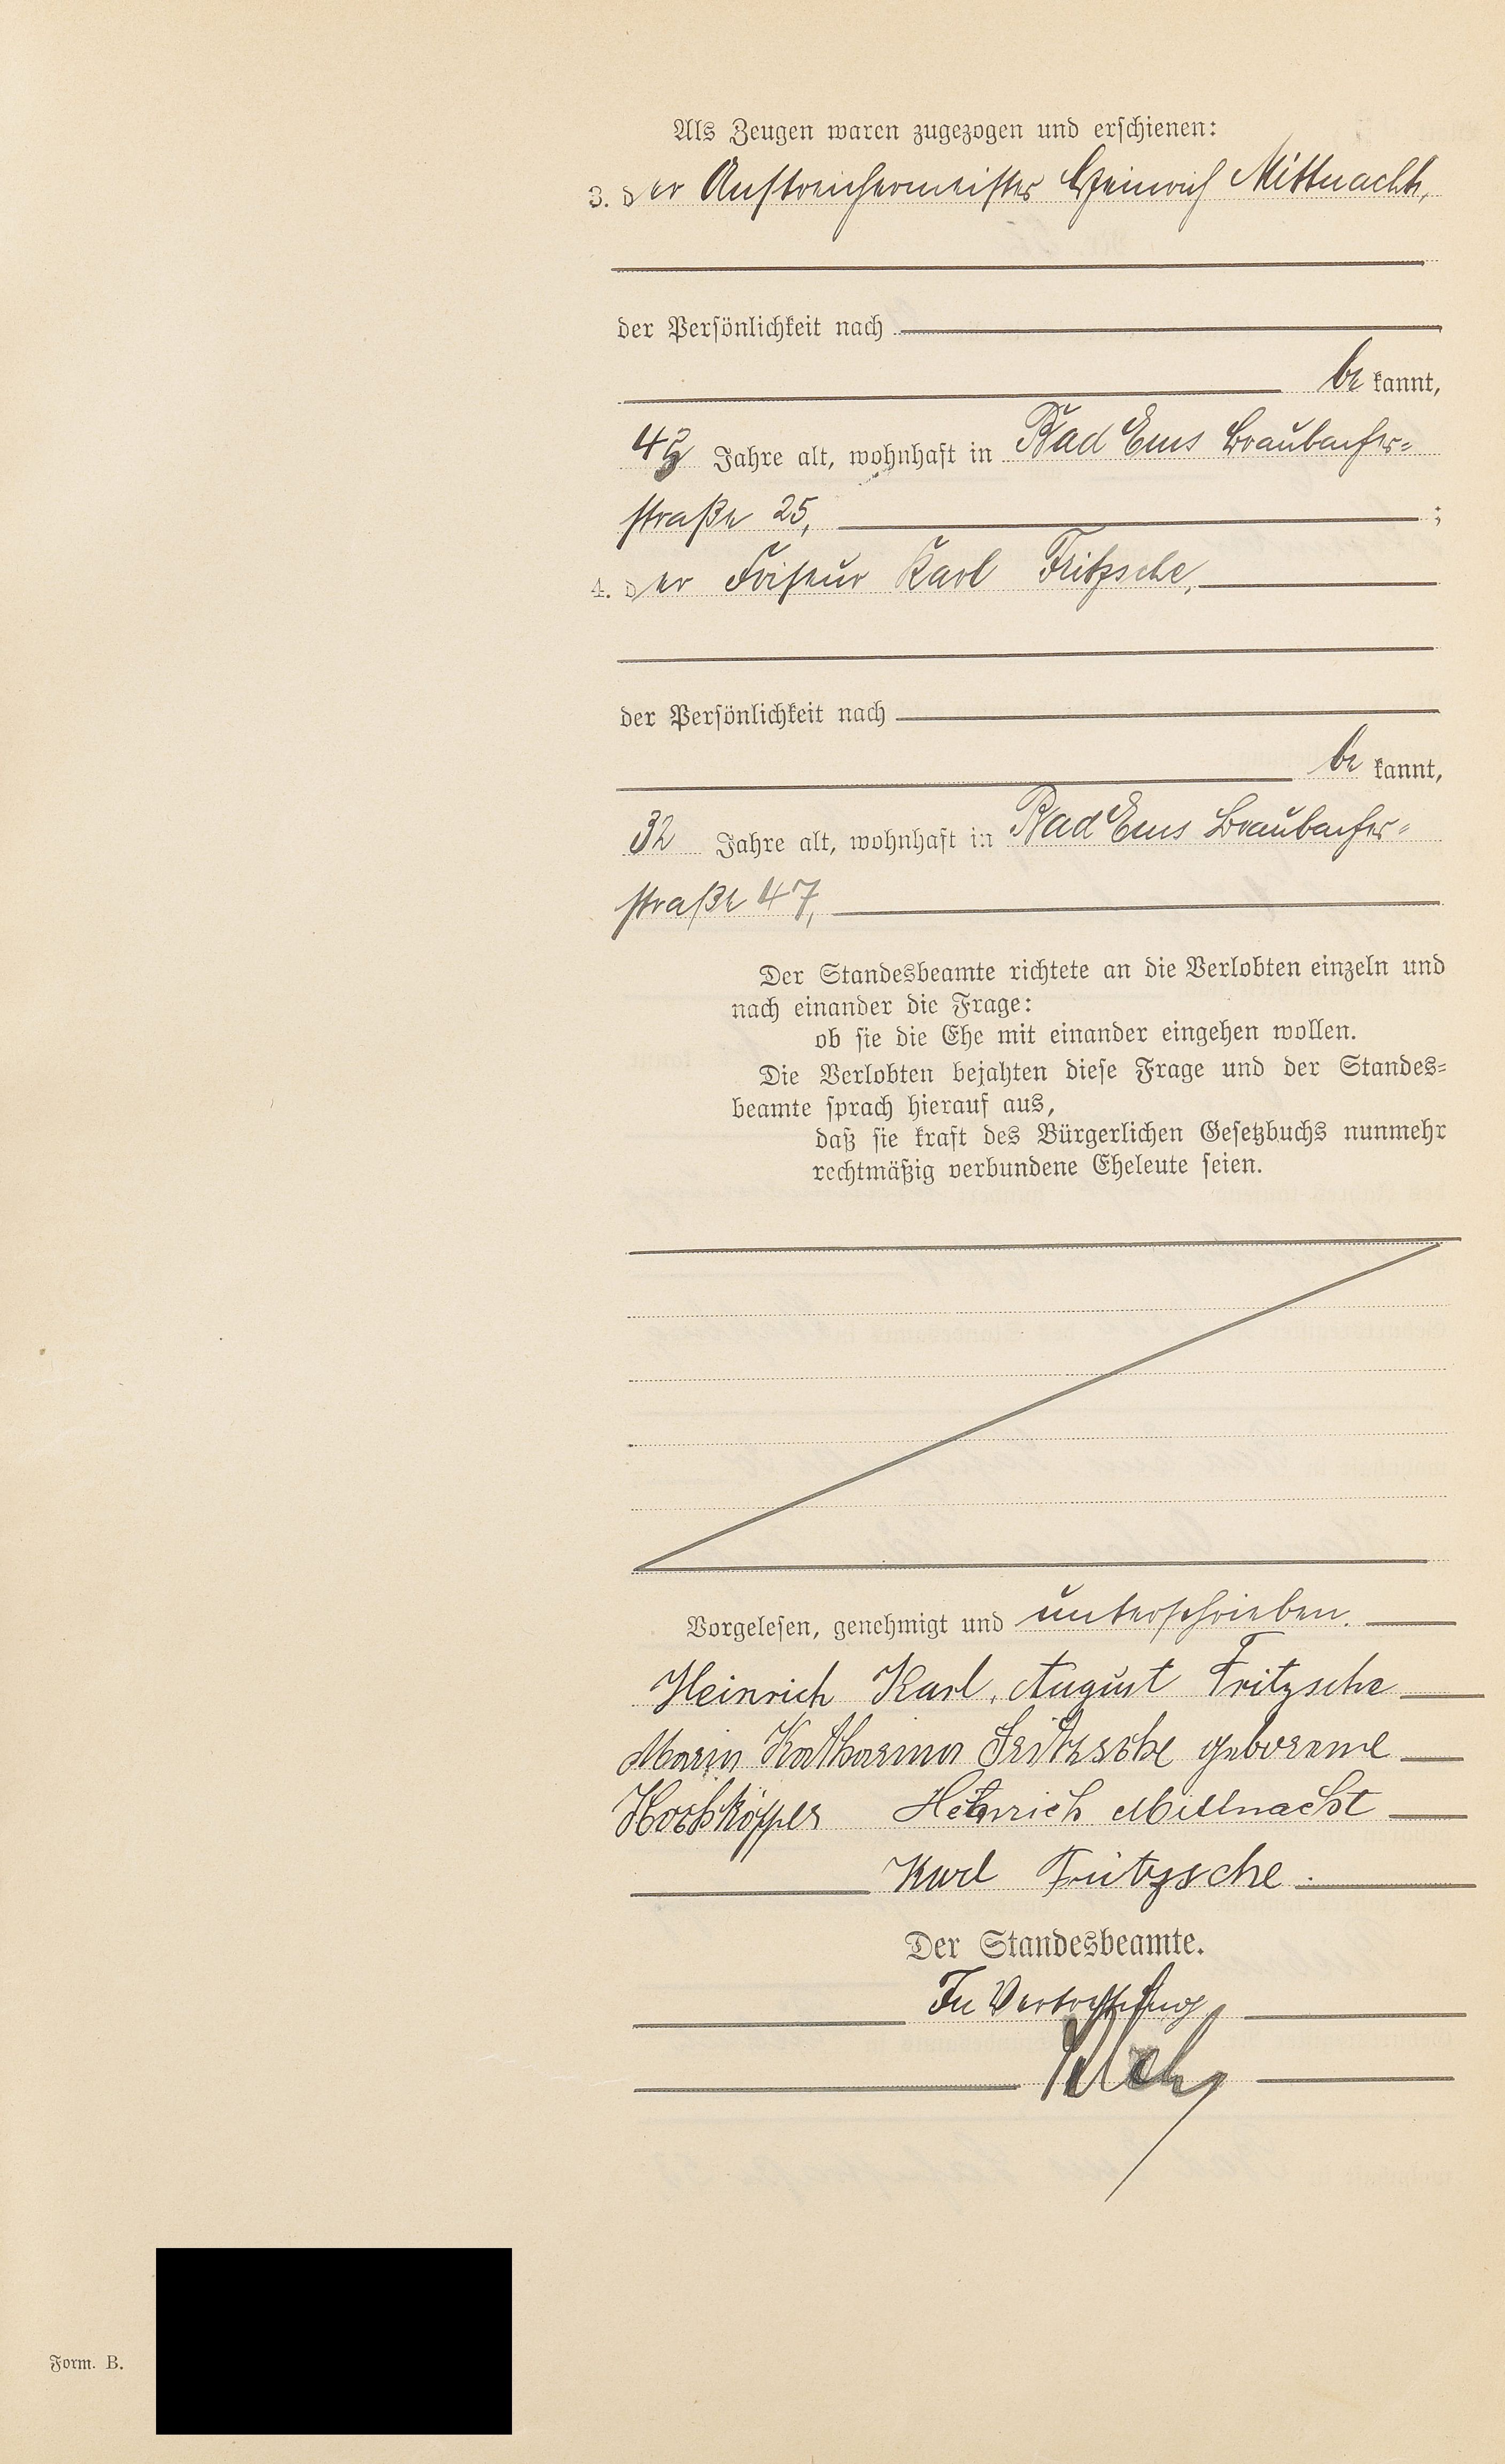 Als Zeugen waren zugezogen und erschienen:
3. der Anstreichermeister Heinrich Mittnacht,
der Persönlichkeit nach
be kannt,
Jahre alt, wohnhaft in Bad Ems Braubacher=
straße 25, ;
4. der Friseur Karl Fritzsche,
der Persönlichkeit nach
be kannt,
32 Jahre alt, wohnhaft in Bad Ems Braubacher=
straße 47,
Der Standesbeamte richtete an die Verlobten einzeln und
nach einander die Frage:
ob sie die Ehe mit einander eingehen wollen.
Die Verlobten bejahten diese Frage und der Standes=
beamte sprach hierauf aus,
daß sie kraft des Bürgerlichen Gesetzbuchs nunmehr
rechtmäßig verbundene Eheleute seien.
Vorgelesen, genehmigt und unterschrieben.
Heinrich Karl, August Fritzsche
Maria Katharina Fritzsche geborene
Heinrich Mittnacht
Karl Fritzsche.
Der Standesbeamte.
In Vertretung
Form. B.